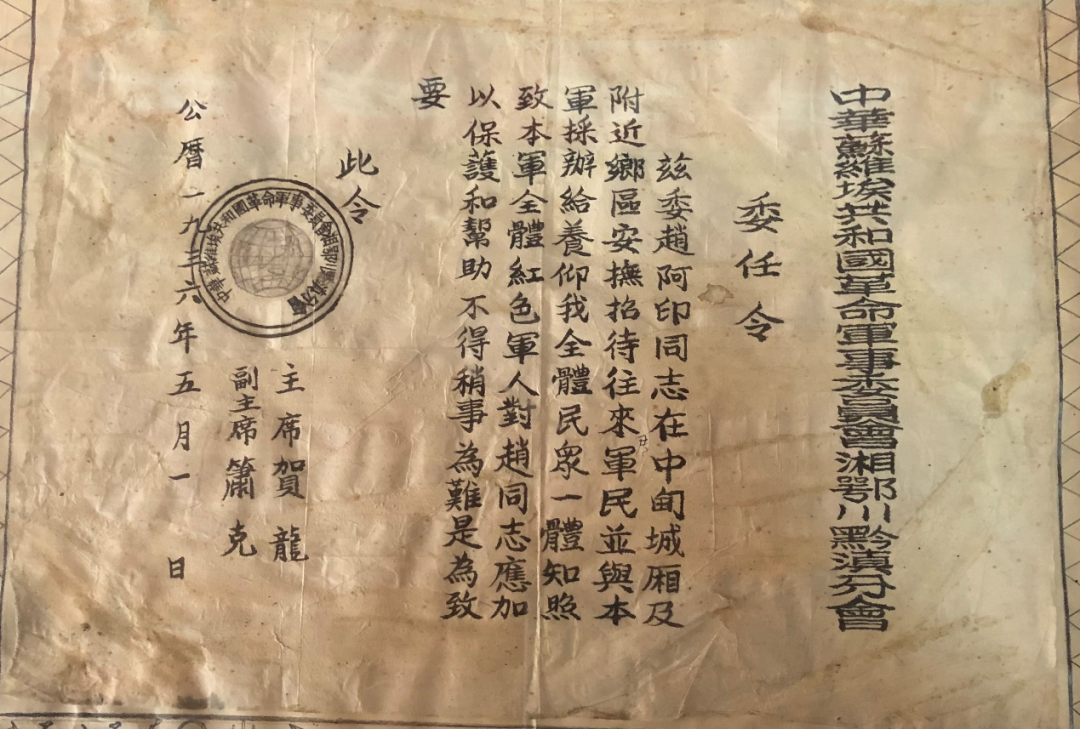 中華蘇維埃共和國革命軍事委員會湘鄂川黔滇分會
委任令
兹委趙阿印同志在中甸城厢及
附近鄉區安撫招待往來軍民並與本
軍採辦給養仰我全體民眾一體知照
致本軍全體紅色軍人對趙同志應加
以保護和幫助不得稍事為難是為致
要
此令
主席賀龍
副主席簫克
公曆一九三六年五月一日
中華蘇維埃共和國革命軍事委員會湘鄂川黔滇分會